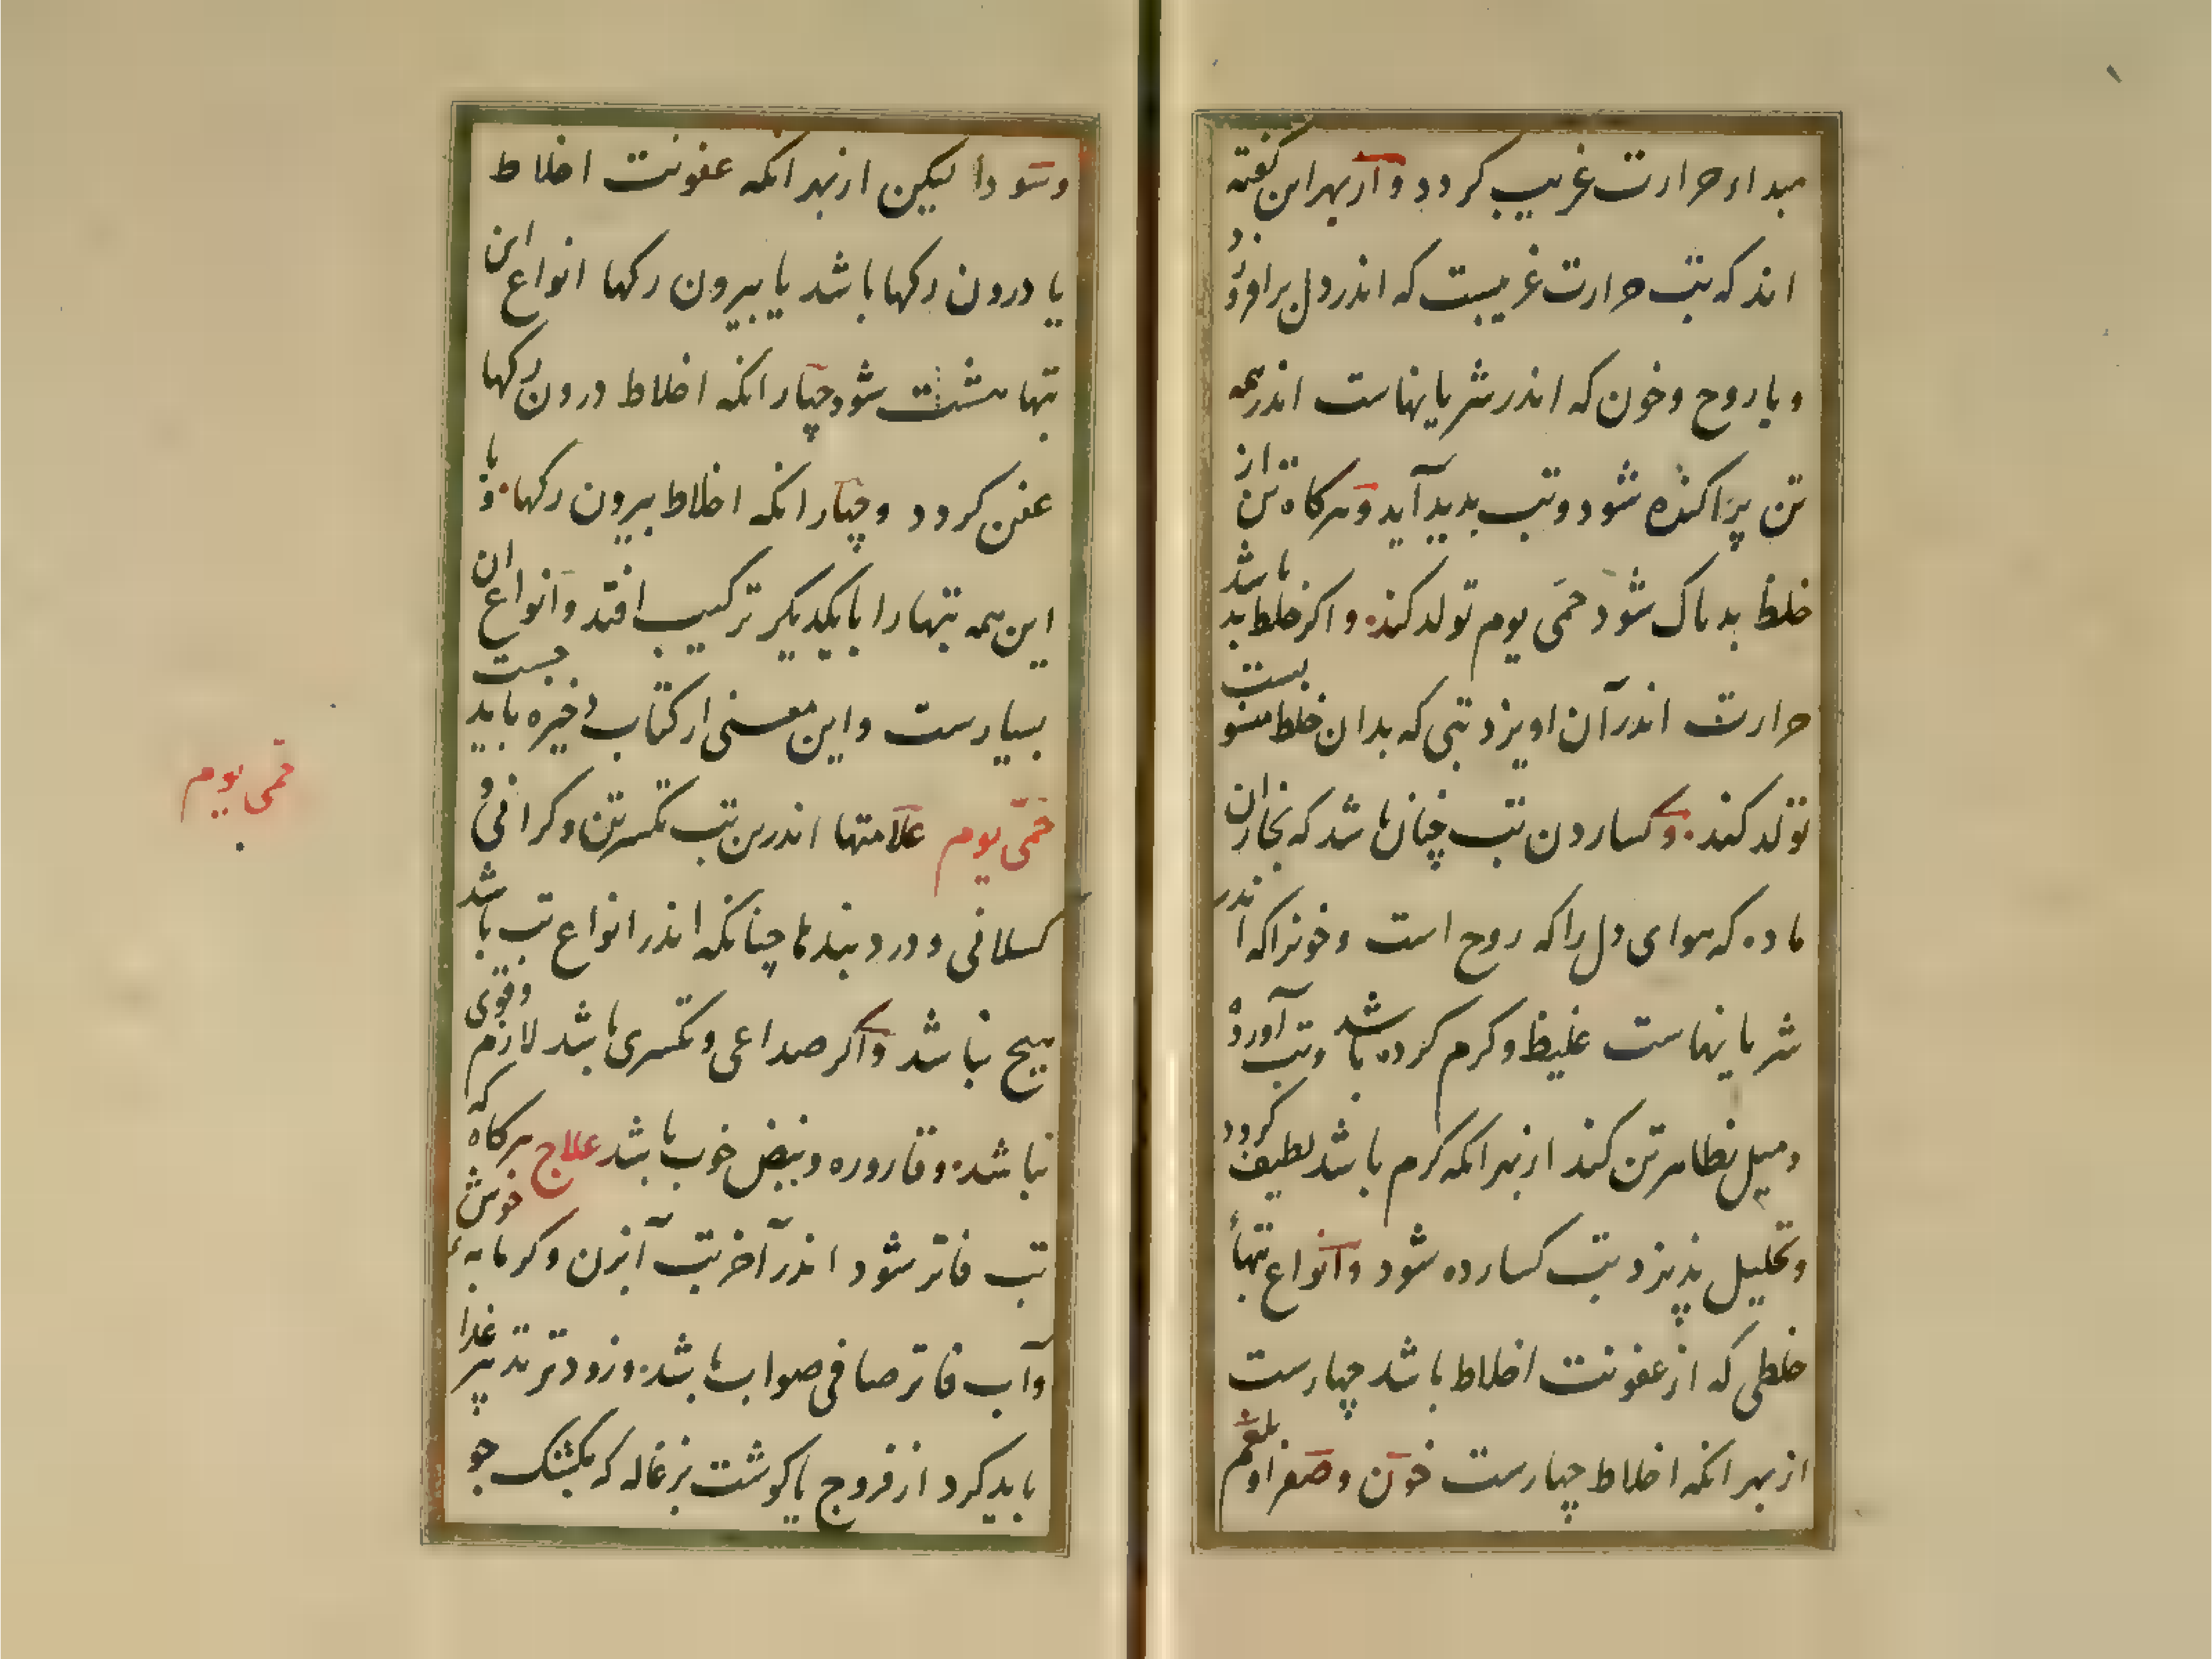 مبداء حرارت غریب کردد و از بهر این گفته
اند که تب حرارت غریبست که اندر دل برافروزد
و با روح و خون که اندر شریانهاست اندر همه
تن پراکنده شود و تب بدید آید و هرکاه تن از
خلط بد پاک شود حمی یوم تولد کند و اکر خلط بد باشد
حرارت اندر آن اویزد تبی که بدان خلط منسوبست
تولد کند و کساردن تب چنان باشد که بخار ان
ماده که هوای دل را که روح است و خونرا که اندر
شریانهاست غلیظ و کرم کرده باشد و تب آورده
و میل بظاهر تن کند از بهر انکه کرم باشد لطیف کردد
و تحلیل پذیرد تب کسارده شود و انواع تبهاء
خلطی که از عفونت اخلاط باشد چهارست
از بهر انکه اخلاط چهارست خون و صفرا و بلغم
و سودا لیکن از بهر انکه عفونت اخلاط
یا درون رکها باشد یا بیرون رکها انواع این
تبها هشت شود چهار انکه اخلاط درون رکها
عفن کردد و چهار انکه اخلاط بیرون رکها و با
این همه تبها را با یکدیکر ترکیب افتد و انواع ان
بسیارست و این معنی از کتاب ذخیره باید جست
حمی یوم علامتها اندرین تب تکسر تن و کرانی و
کسلانی و درد بندها چنانکه اندر انواع تب باشد
هیچ نباشد و اکر صداعی و تکسری باشد لازم و قوی
نباشد و قاروره و نبض خوب باشد علاج هرکاه که
تب فاتر شود اندر آخر تب آبزن و کرمابه خوش
و آب فاتر صافی صواب باشد و زودتر تدبیر غذا
باید کرد از فروج یا کوشت بزغاله که بکشک جو
حمی یوم